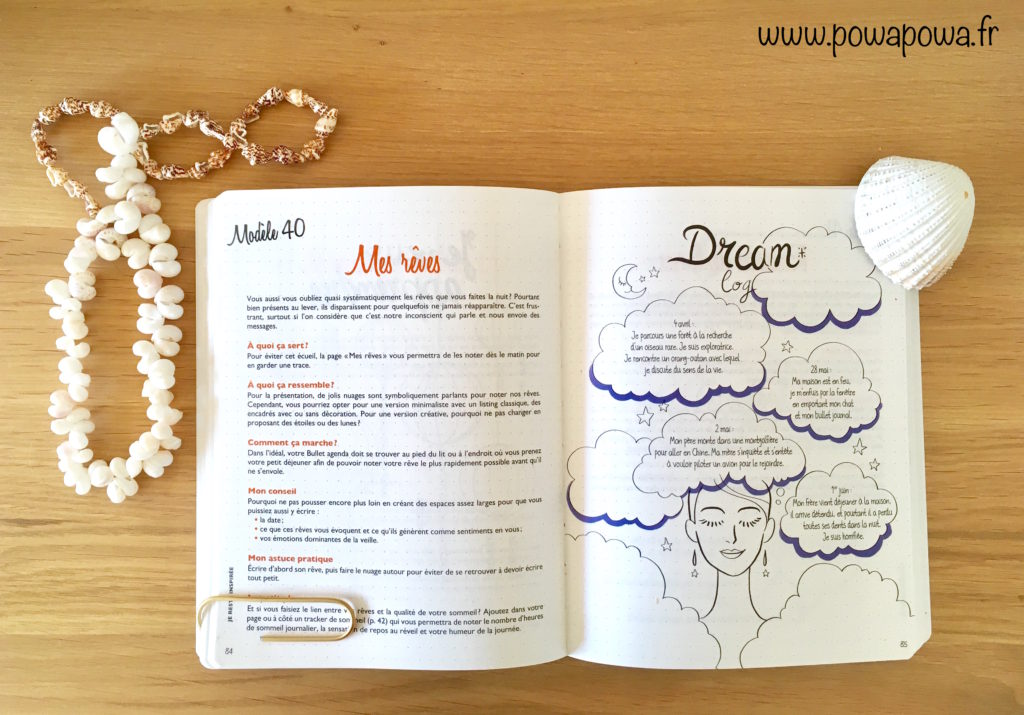 www.powapowa.fr
Modèle 40
Mes rêves
Vous aussi vous oubliez quasi systématiquement les rêves que vous faites la nuit ? Pourtant
bien présents au lever, ils disparaissent pour quelquefois ne jamais réapparaître. C'est frus-
trant, surtout si l'on considère que c'est notre inconscient qui parle et nous envoie des
messages.
À quoi ça sert ?
Pour éviter cet écueil, la page « Mes rêves » vous permettra de les noter dès le matin pour
en garder une trace.
À quoi ça ressemble ?
Pour la présentation, de jolis nuages sont symboliquement parlants pour noter nos rêves.
Cependant, vous pourriez opter pour une version minimaliste avec un listing classique, des
encadrés avec ou sans décoration. Pour une version créative, pourquoi ne pas changer en
proposant des étoiles ou des lunes ?
Comment ça marche ?
Dans l'idéal, votre Bullet agenda doit se trouver au pied du lit ou à l'endroit où vous prenez
votre petit déjeuner afin de pouvoir noter votre rêve le plus rapidement possible avant qu'il
ne s'envole.
Mon conseil
Pourquoi ne pas pousser encore plus loin en créant des espaces assez larges pour que vous
puissiez aussi y écrire :
• la date ;
• ce que ces rêves vous évoquent et ce qu'ils génèrent comme sentiments en vous ;
• vos émotions dominantes de la veille.
Mon astuce pratique
Écrire d'abord son rêve, puis faire le nuage autour pour éviter de se retrouver à devoir écrire
tout petit.
Et si vous faisiez le lien entre vos rêves et la qualité de votre sommeil ? Ajoutez dans votre
page ou à côté un tracker de sommeil (p. 42) qui vous permettra de noter le nombre d'heures
de sommeil journalier, la sensation de repos au réveil et votre humeur de la journée.
84
Dream
log
4 avril :
Je parcours une forêt à la recherche
d'un oiseau rare. Je suis exploratrice.
Je rencontre un orang-outan avec lequel
je discute du sens de la vie.
28 mai :
Ma maison est en feu,
je m'enfuis par la fenêtre
en emportant mon chat
et mon bullet journal.
2 mai :
Mon père monte dans une montgolfière
pour aller en Chine. Ma mère s'inquiète et s'entête
à vouloir piloter un avion pour le rejoindre.
1er juin :
Mon frère vient déjeuner à la maison,
il arrive détendu, et pourtant il a perdu
toutes ses dents dans la nuit.
Je suis horrifiée.
85